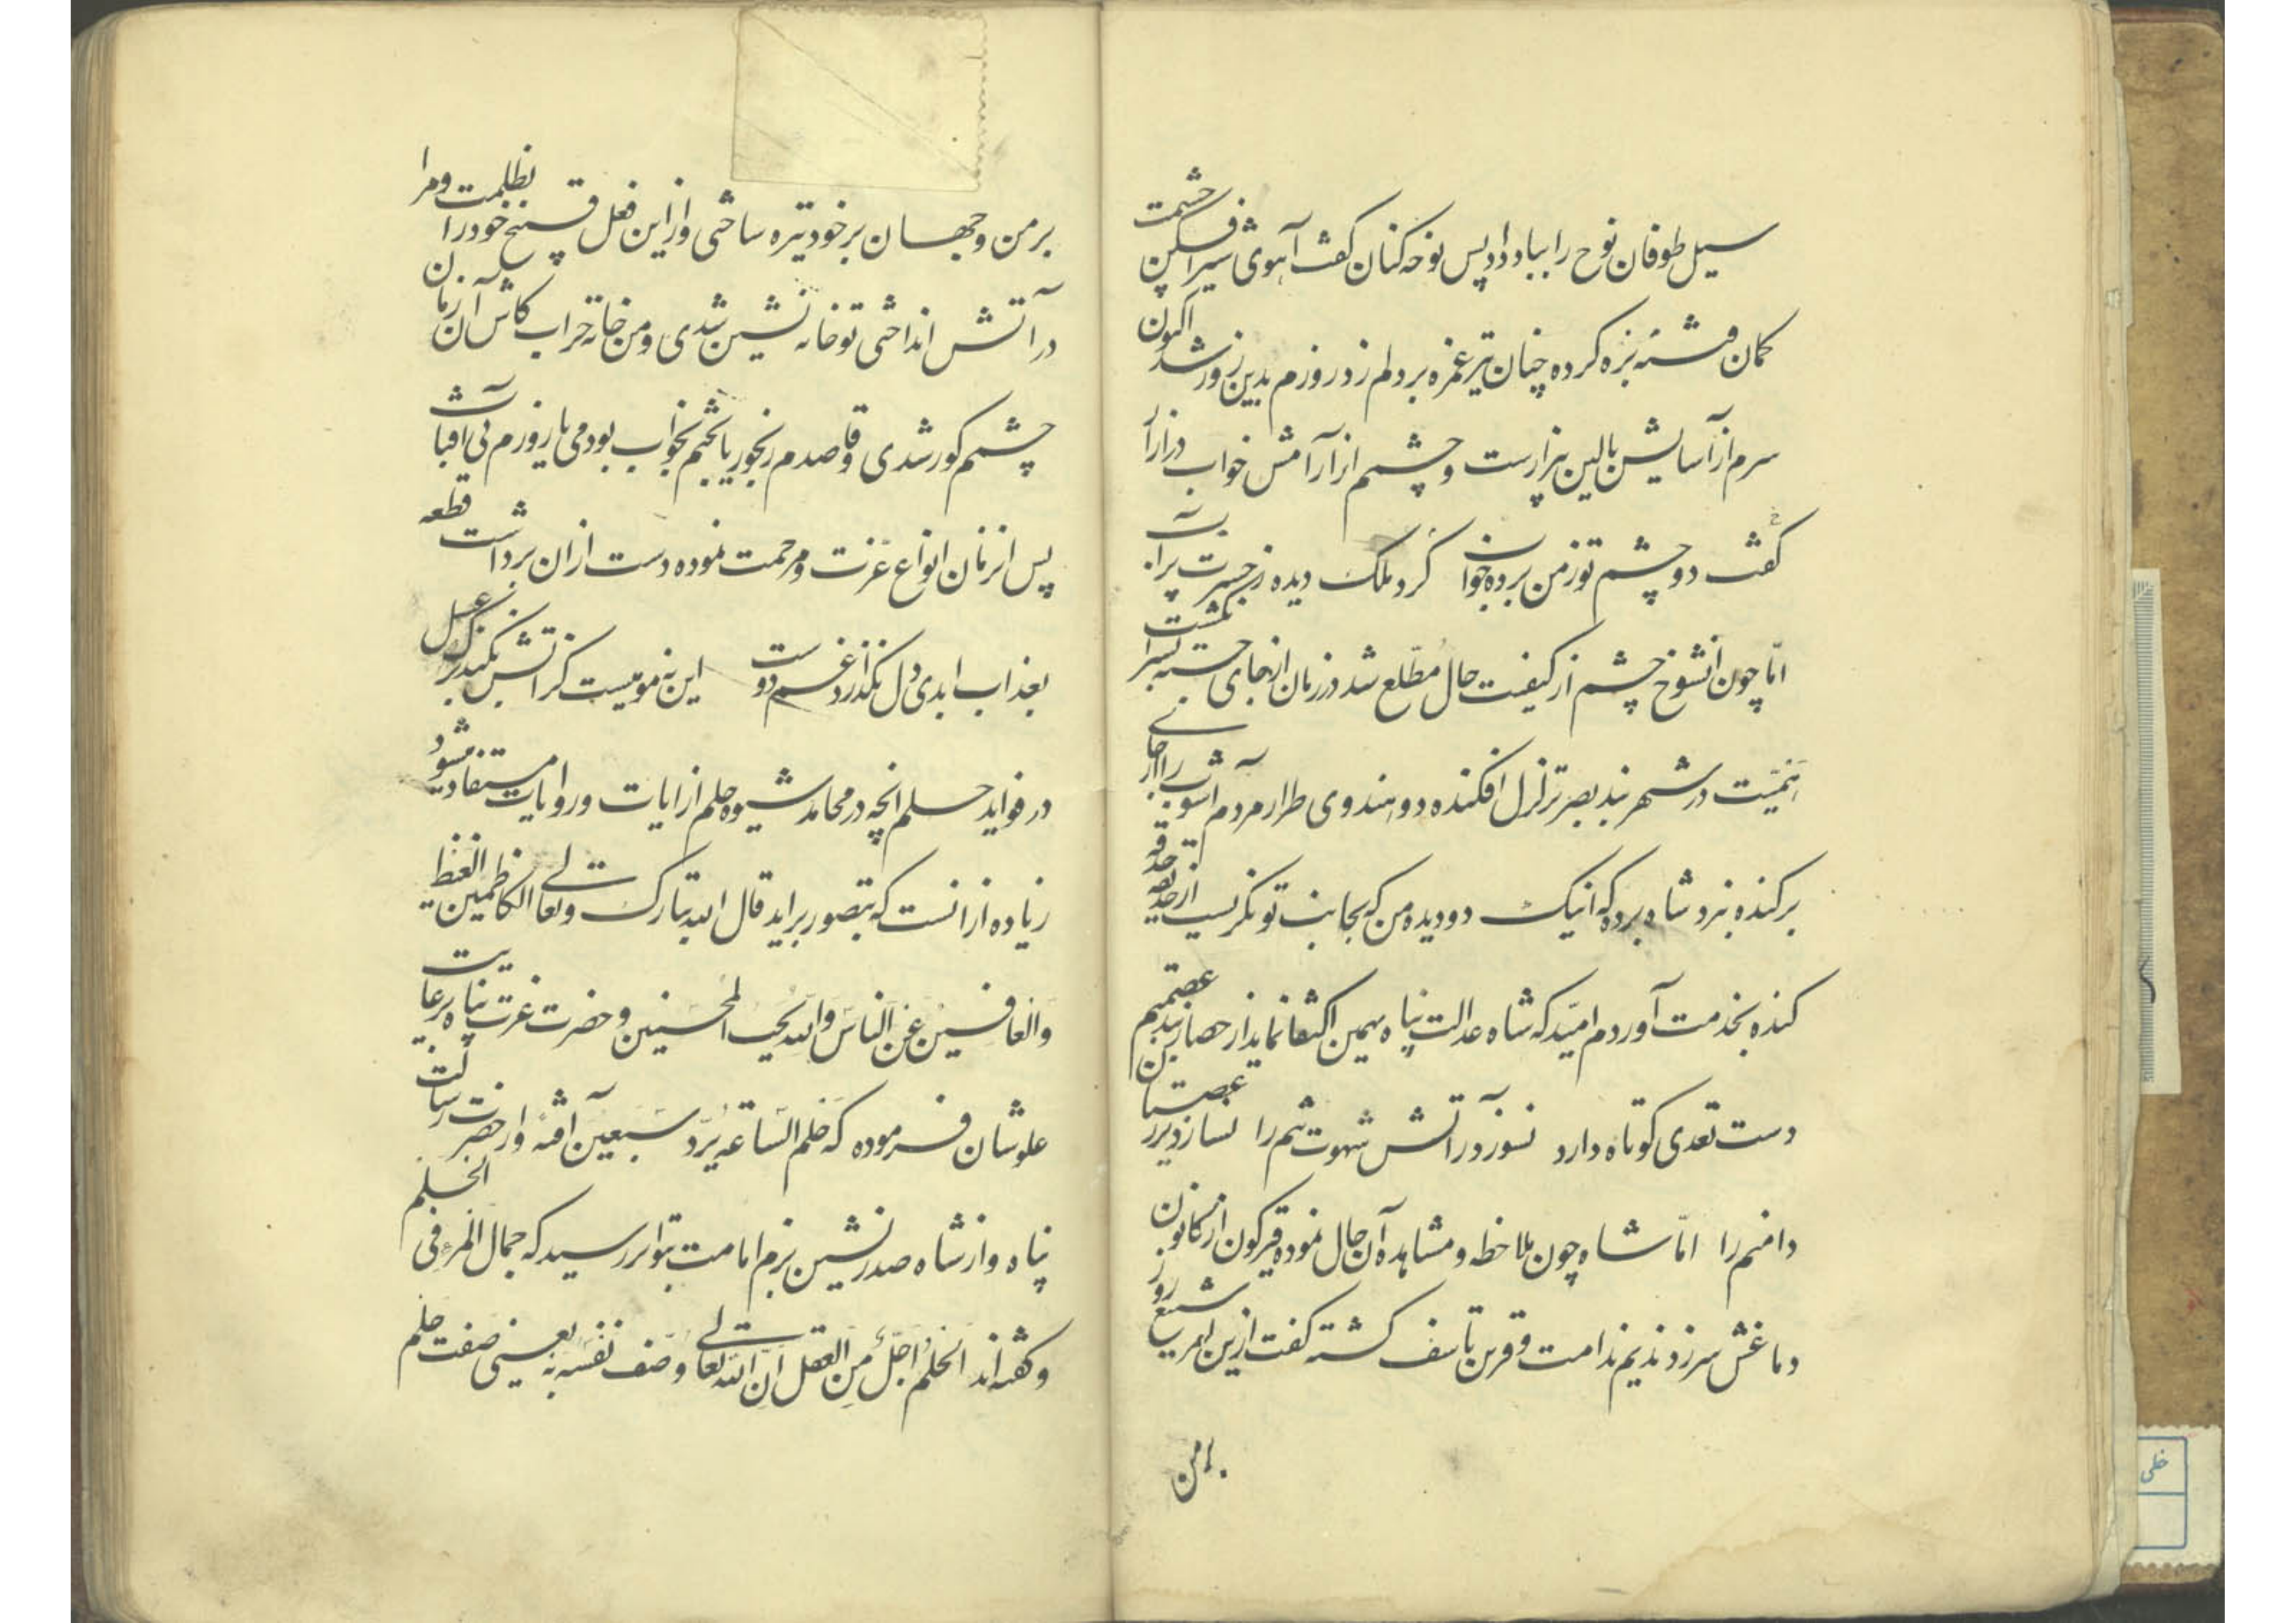 سیل طوفان نوح را بباد داد پس نوحه کنان گفت آهوی شیرافکن چشمت
کمان فتنه بزه کرده چنان تیر غمزه بر دلم زد روزم بدین روز شد اکنون
سرم از آسایش بالین بیزارست و چشم از آرامش خواب در آزار
گفت دو چشم تو ز من برده خواب کرد ملک دیده ز حسرت پر آب
امّا چون آنشوخ چشم از کیفیت حال مطّلع شد در زمان از جای جسته بسر انگشت
حمیّت در شهربند بصر تزلزل افکنده دو هندوی طرار مردم آشوب را از جای
برکنده نزد شاه برد که اینک دو دیده من که بجانب تو نگریست از حدیقه حدقه
کنده بخدمت آوردم امیّد که شاه عدالت پناه بهمین اکتفا نماید از حصار بند عصمتم
دست تعدی کوتاه دارد نسوزد در آتش شهوت تنم را نسازد
دامنم را امّا شاه چون ملاحظه و مشاهده آن حال نموده از کانون
دماغش سر زد ندیم ندامت و قرین تاسف گشته گفت ازین امر شنیع روز
بر من
بر من و جهان بر خود تیره ساختی و از این فعل قبیح خود را بظلمت و مرا
در آتش انداختی تو خانه نشین شدی و من خانه خراب کاش آن زمان
چشمم کور شدی و قاصدم رنجور یا بختم بخواب بودمی یا روزم بی آفتاب
پس از زمان انواع عزت و مرحمت نموده دست از آن برداشت قطعه
بعذاب ابدی دل نکند از غم دوست این نه مومیست کز آتش بکند ترک عسل
در فواید حلم انچه در محامد شیوه حلم از ایات و روایات مستفاد میشود
زیاده از انست که بتصور براید قال الله تبارک وتعالی الکاظمین الغیظ
والعافین عن الناس والله یحب المحسنین و حضرت عزت پناه
علو شان فرموده که حلم الساعة یرد سبعین آفة و از حضرت رسالت
پناه و از شاه صدرنشین بزم امامت بتواتر رسید که جمال المرء فی الحلم
و گفته اند الحلم اجل من العقل ان الله تعالی وصف نفسه به یعنی صفت حلم